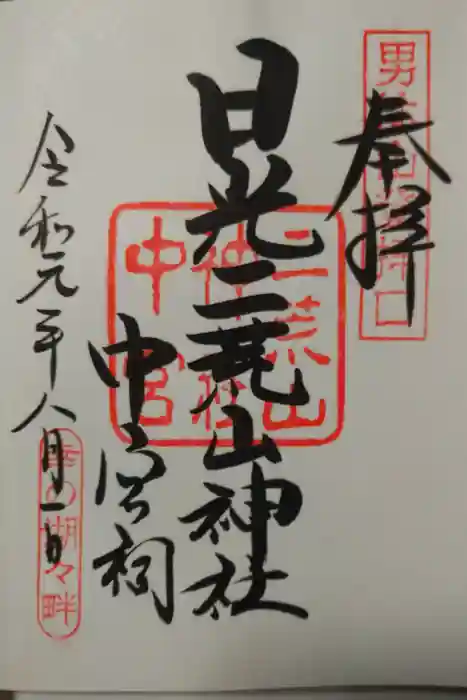 奉拝
日光二荒山神社
中宮祠
令和元年八月一日
二荒山
神社
中宮
幸の湖々畔